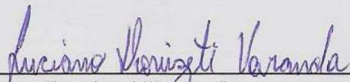 Luciano Donizeti Varanda